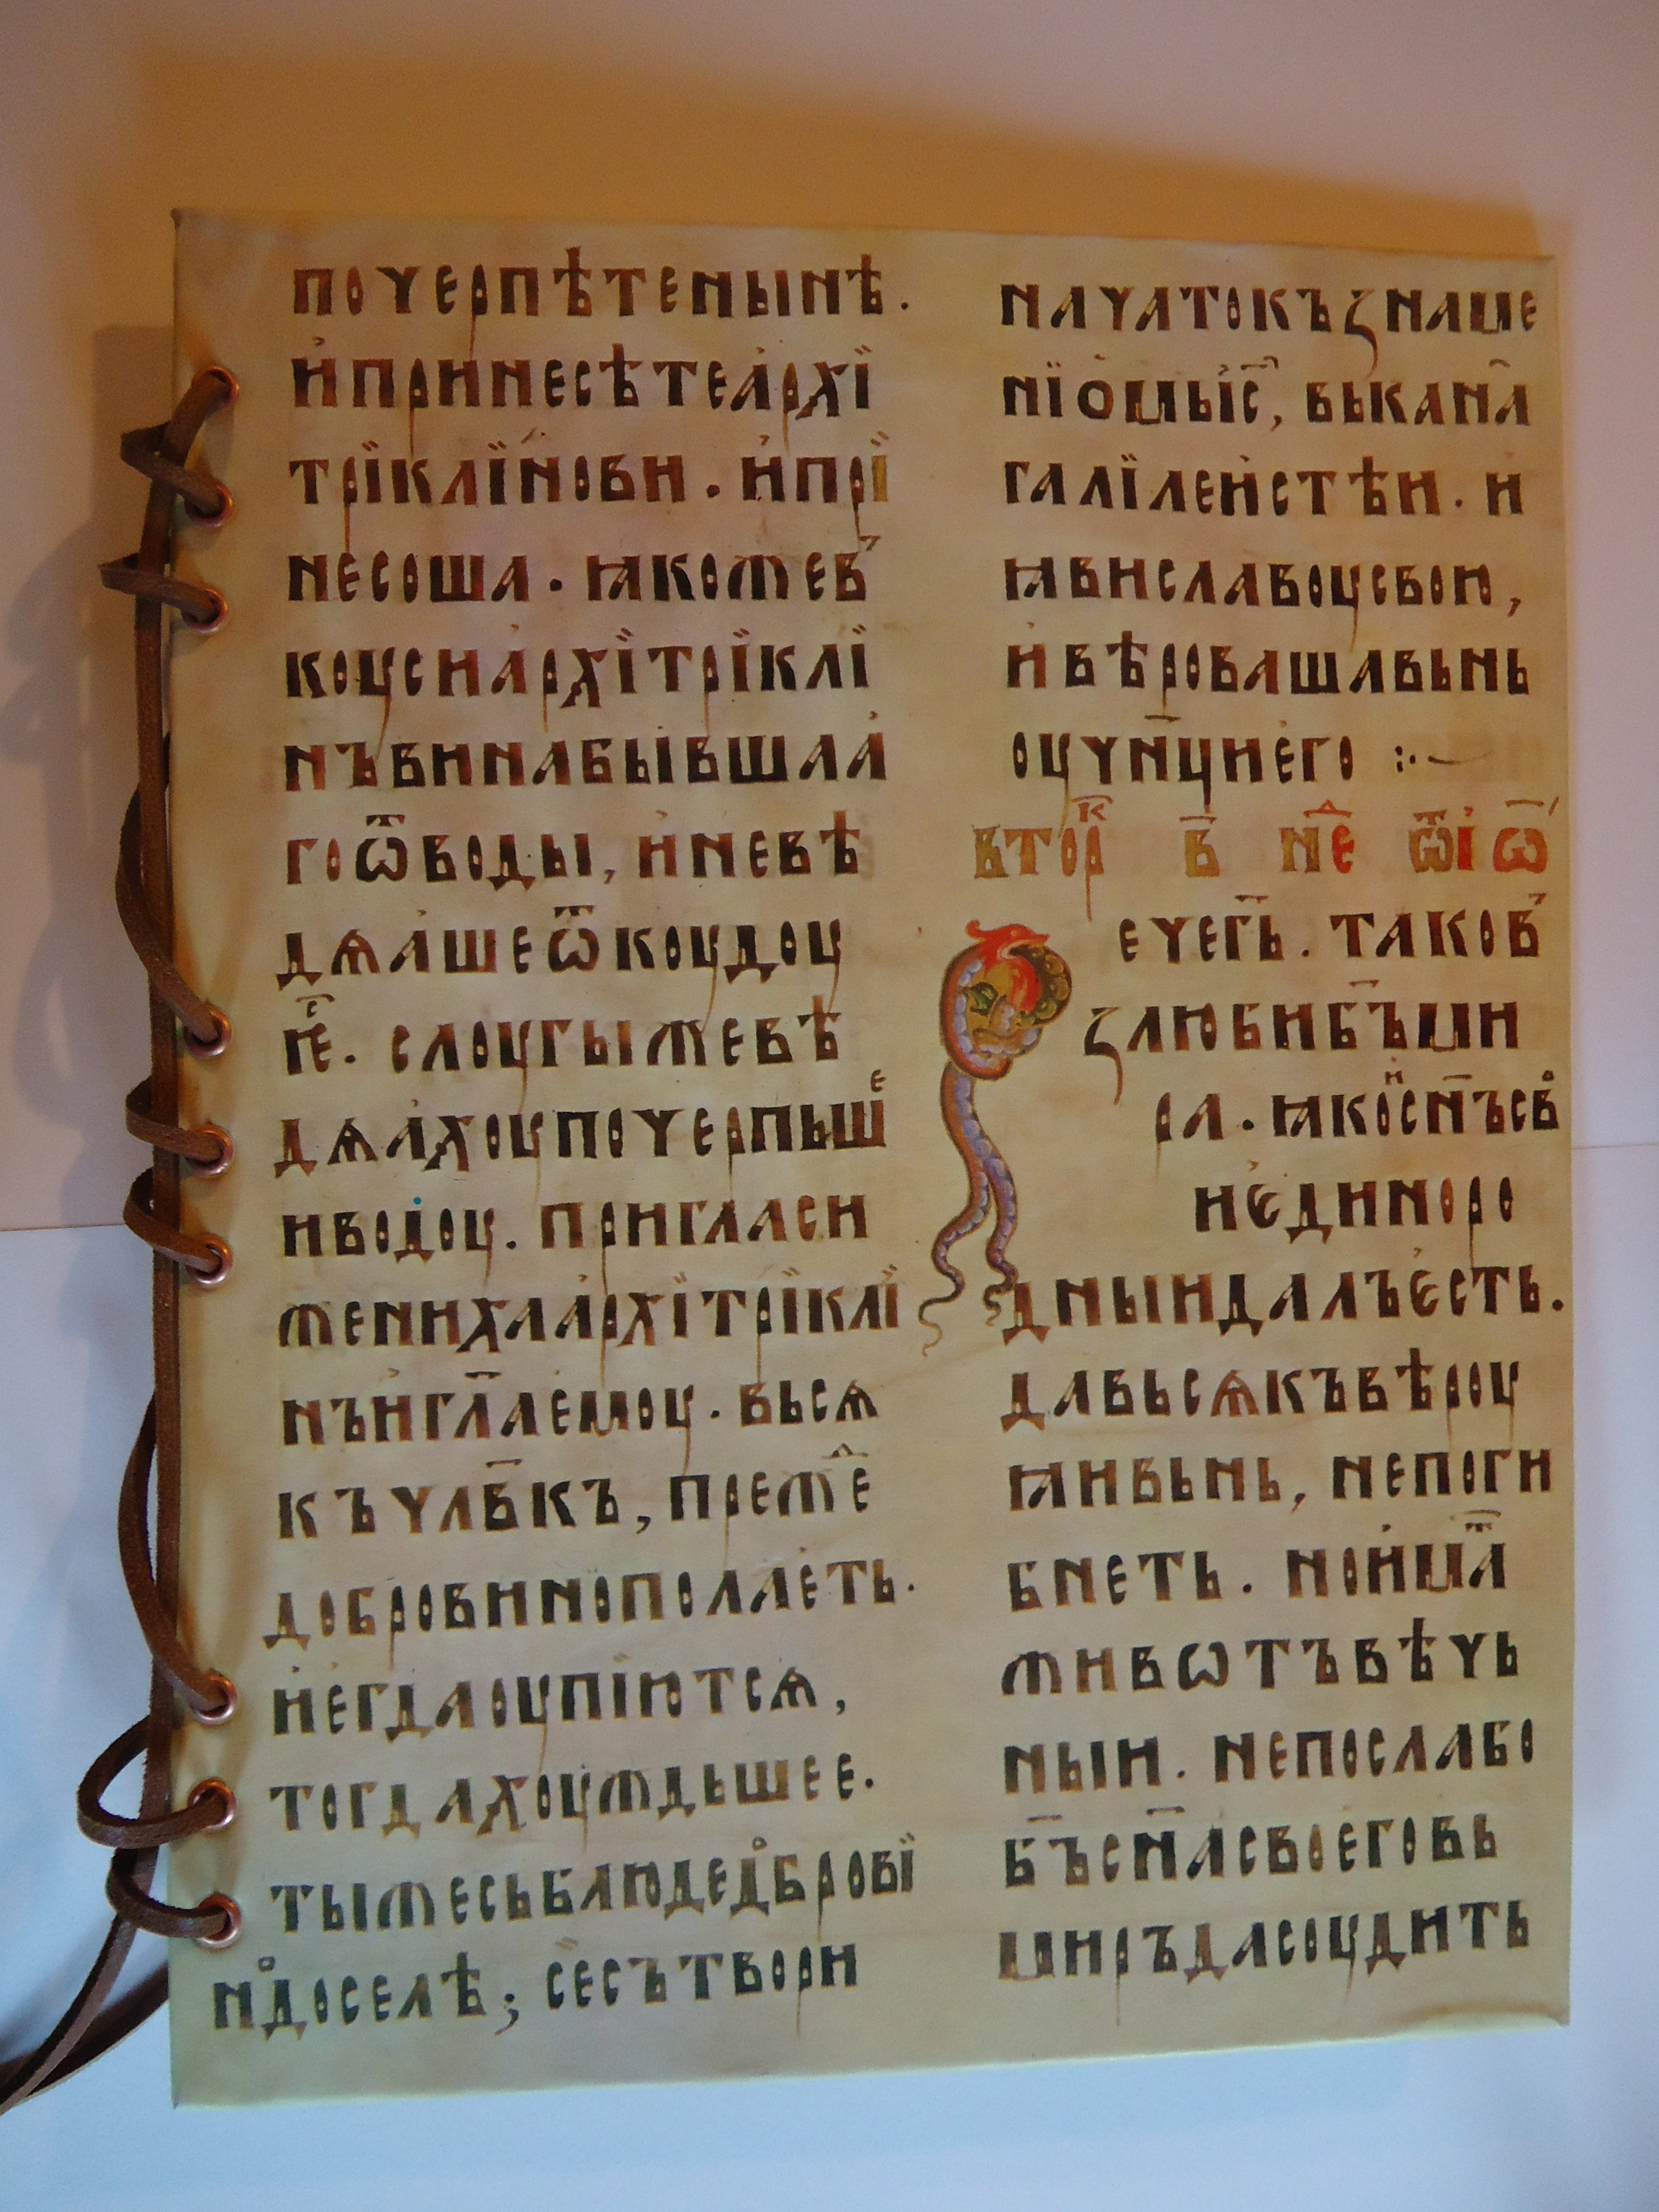 почерпѣтенынѣ.
ипринесѣтеархї
трїклїнови. ипрї
несоша. ꙗкожев
коусиархїтрїклї
нъвинабывшаа
гоѿводы, иневѣ
дѧашеѿкоудоу
ѥⷭ҇. слоугыжевѣ
дѧахоупочерпьшеⷤ
иводоу. пригласи
женихаархїтрїклї
нъиглаемоу. вьсѧ
къчлвкъ, преже
добровинополаеть.
иегдаоупіютсѧ,
тогдахоуждьшее.
тыжесьблюдедобровї
нодоселѣ; сесътвори
начатокъꙁнаме
нїомыіс҃, вькана
галїлеистѣи. и
ꙗвиславоусвою,
ивѣровашавьнь
оучнциего :·~
вторⷦ҇ в҃ нⷣе ѿі ѡ҃
Рече г҃ь. таков
ꙁлюбиб҃ъми
ра. ꙗкоис҃нъсво
иединоро
дныидалъесть.
давьсѧкъвѣроу
ꙗивьнь, непоги
бнеть. ноима҃ⷮ
живѡтъвѣчь
ныи. непослабо
б҃ъс҃насвоеговь
миръдасоудить